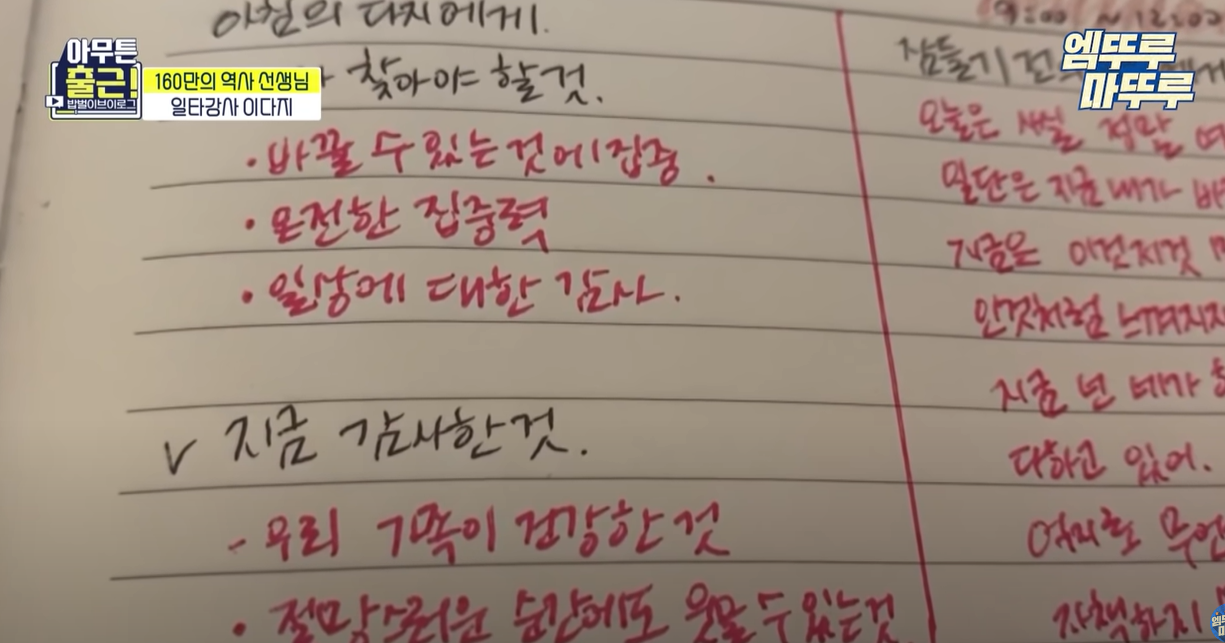 아무튼
출근!
밥벌이브이로그
160만의 역사 선생님
일타강사 이다지
엠뚜루
마뚜루
아침의 다지에게.
찾아야 할것.
· 바꿀 수 있는 것에 집중.
· 온전한 집중력
· 일상에 대한 감사.
v 지금 감사한것.
- 우리 가족이 건강한 것
· 절망스러운 순간에도 웃을 수 있는것
9:00 ~ 12:00
잠들기 전
오늘은 정말
일단은 지금 내가
지금은 이것저것
안것처럼 느껴지지
지금 넌 네가
다하고 있어.
억지로
자책하지